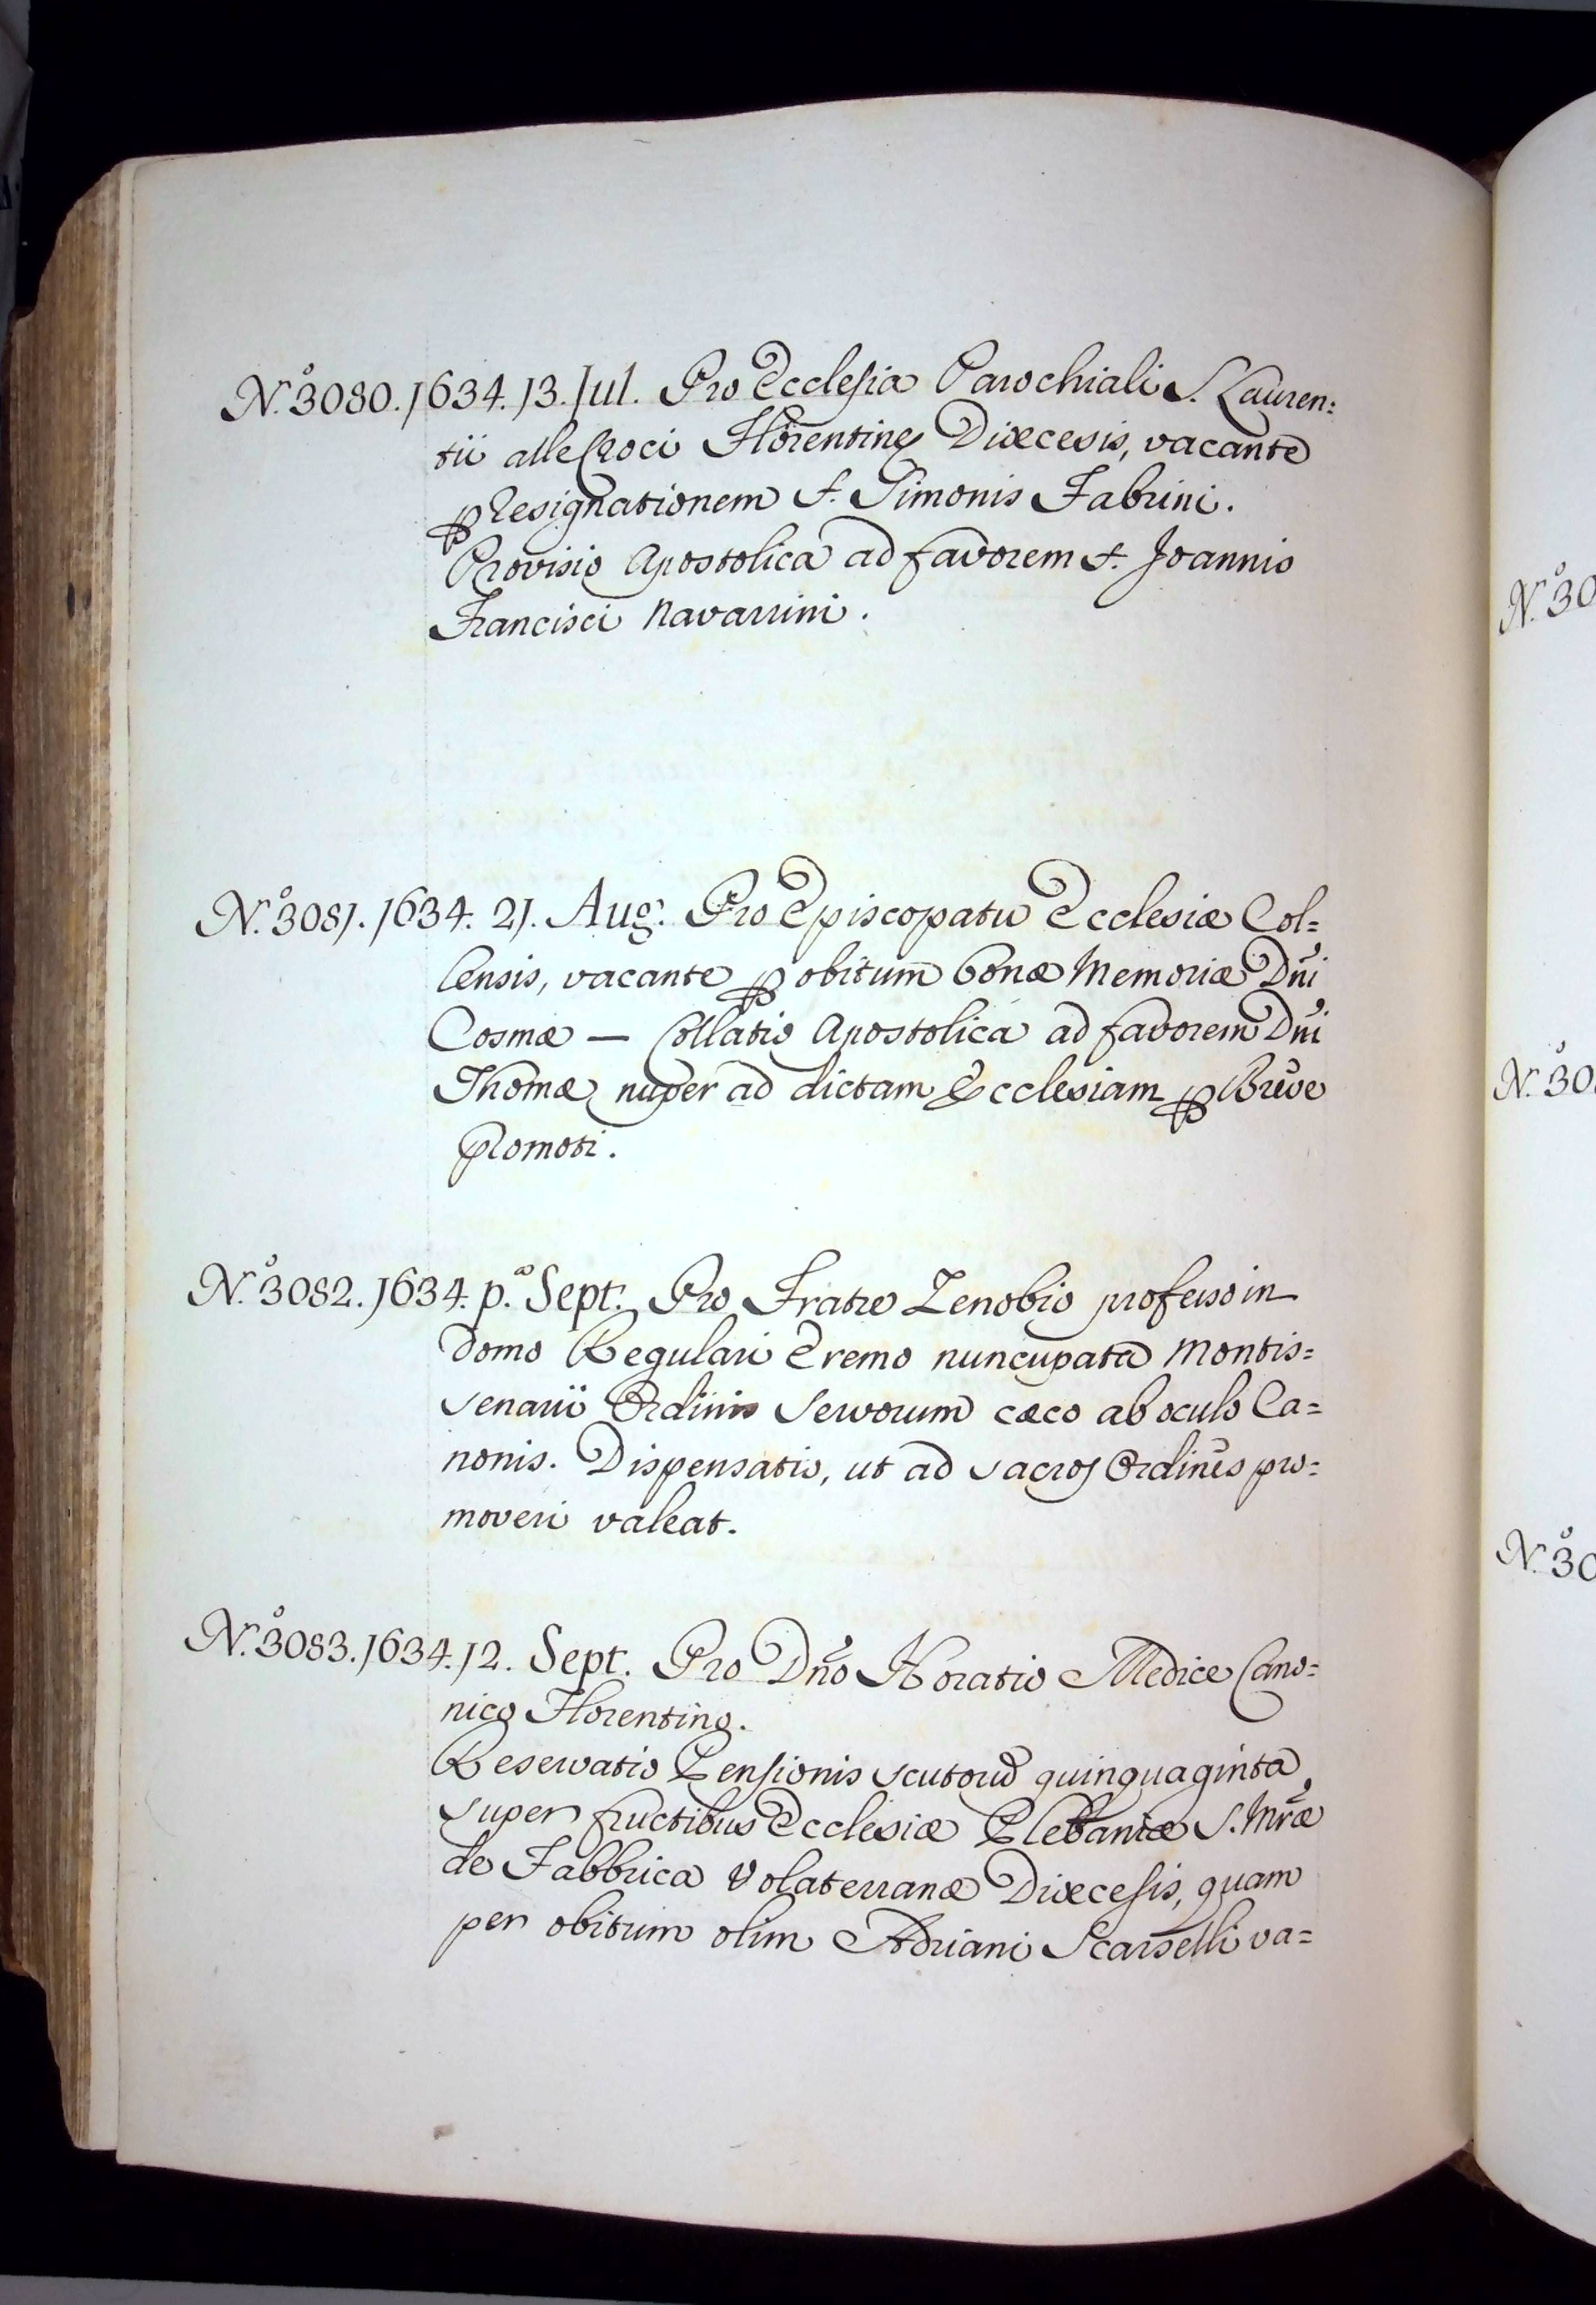 N.º 3080. 1634. 13. Jul. Pro Ecclesia Parochiali S. Lauren=
tii alle Croci Florentinę Diœcesis, vacante
ꝑ resignationem S. Simonis Fabrini.
Provisio Apostolica ad favorem S. Joannis
Francisci Navarrini.
N.º 3081. 1634. 21. Aug. Pro Episcopatu Ecclesiæ Col=
lensis, vacante ꝑ obitum bonæ Memoriæ Dñi
Cosmæ — Collatio Apostolica ad favorem Dñi
Thomæ nuper ad dictam Ecclesiam ꝑ Breve
promoti.
N.º 3082. 1634. p.ª Sept. Pro Fratre Zenobio professo in
Domo Regulari Eremo nuncupata Montis=
senarii Ordinis Servorum cæco ab oculo Ca=
nonis. Dispensatio, ut ad sacros Ordines pro=
moveri valeat.
N.º 3083. 1634. 12. Sept. Pro Dño Horatio Medice Cano=
nico Florentino.
Reservatio Pensionis scutorũ quinquaginta
super fructibus Ecclesiæ Plebaniæ S. Mr̃æ
de Fabbrica Volaterranæ Diœcesis, quam
per obitum olim Adriani Scarselli va=
N.º 30
N.º 30
N.º 30